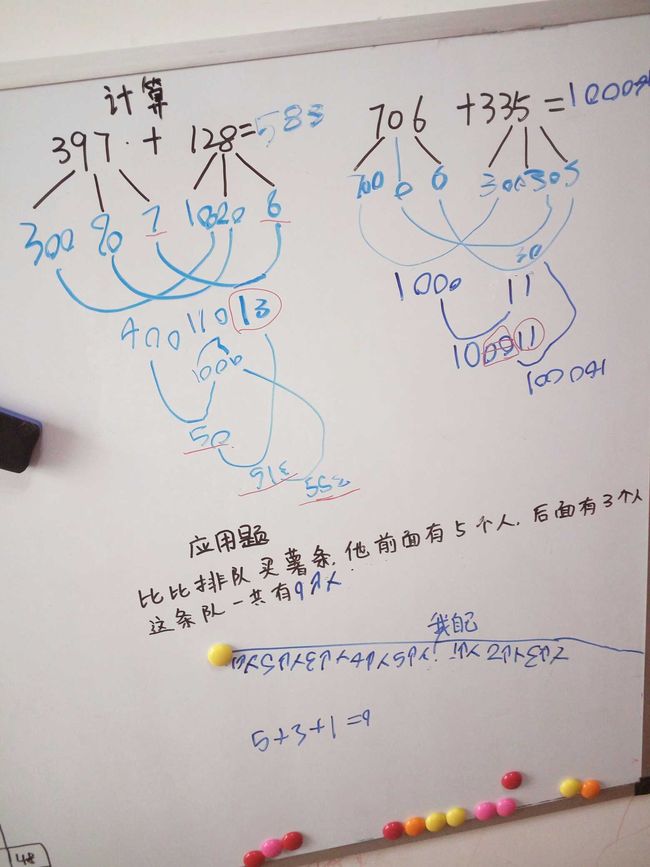 计算
397 + 128=583
706 +335=
300 90 7 100 20 6
700 0 6 300 30 5
400 110 13
30
1000 11
1000
100911
50
513
553
应用题
比比排队买薯条,他前面有5个人,后面有3个人
这条队一共有9个人
我自己
5+3+1=9
48